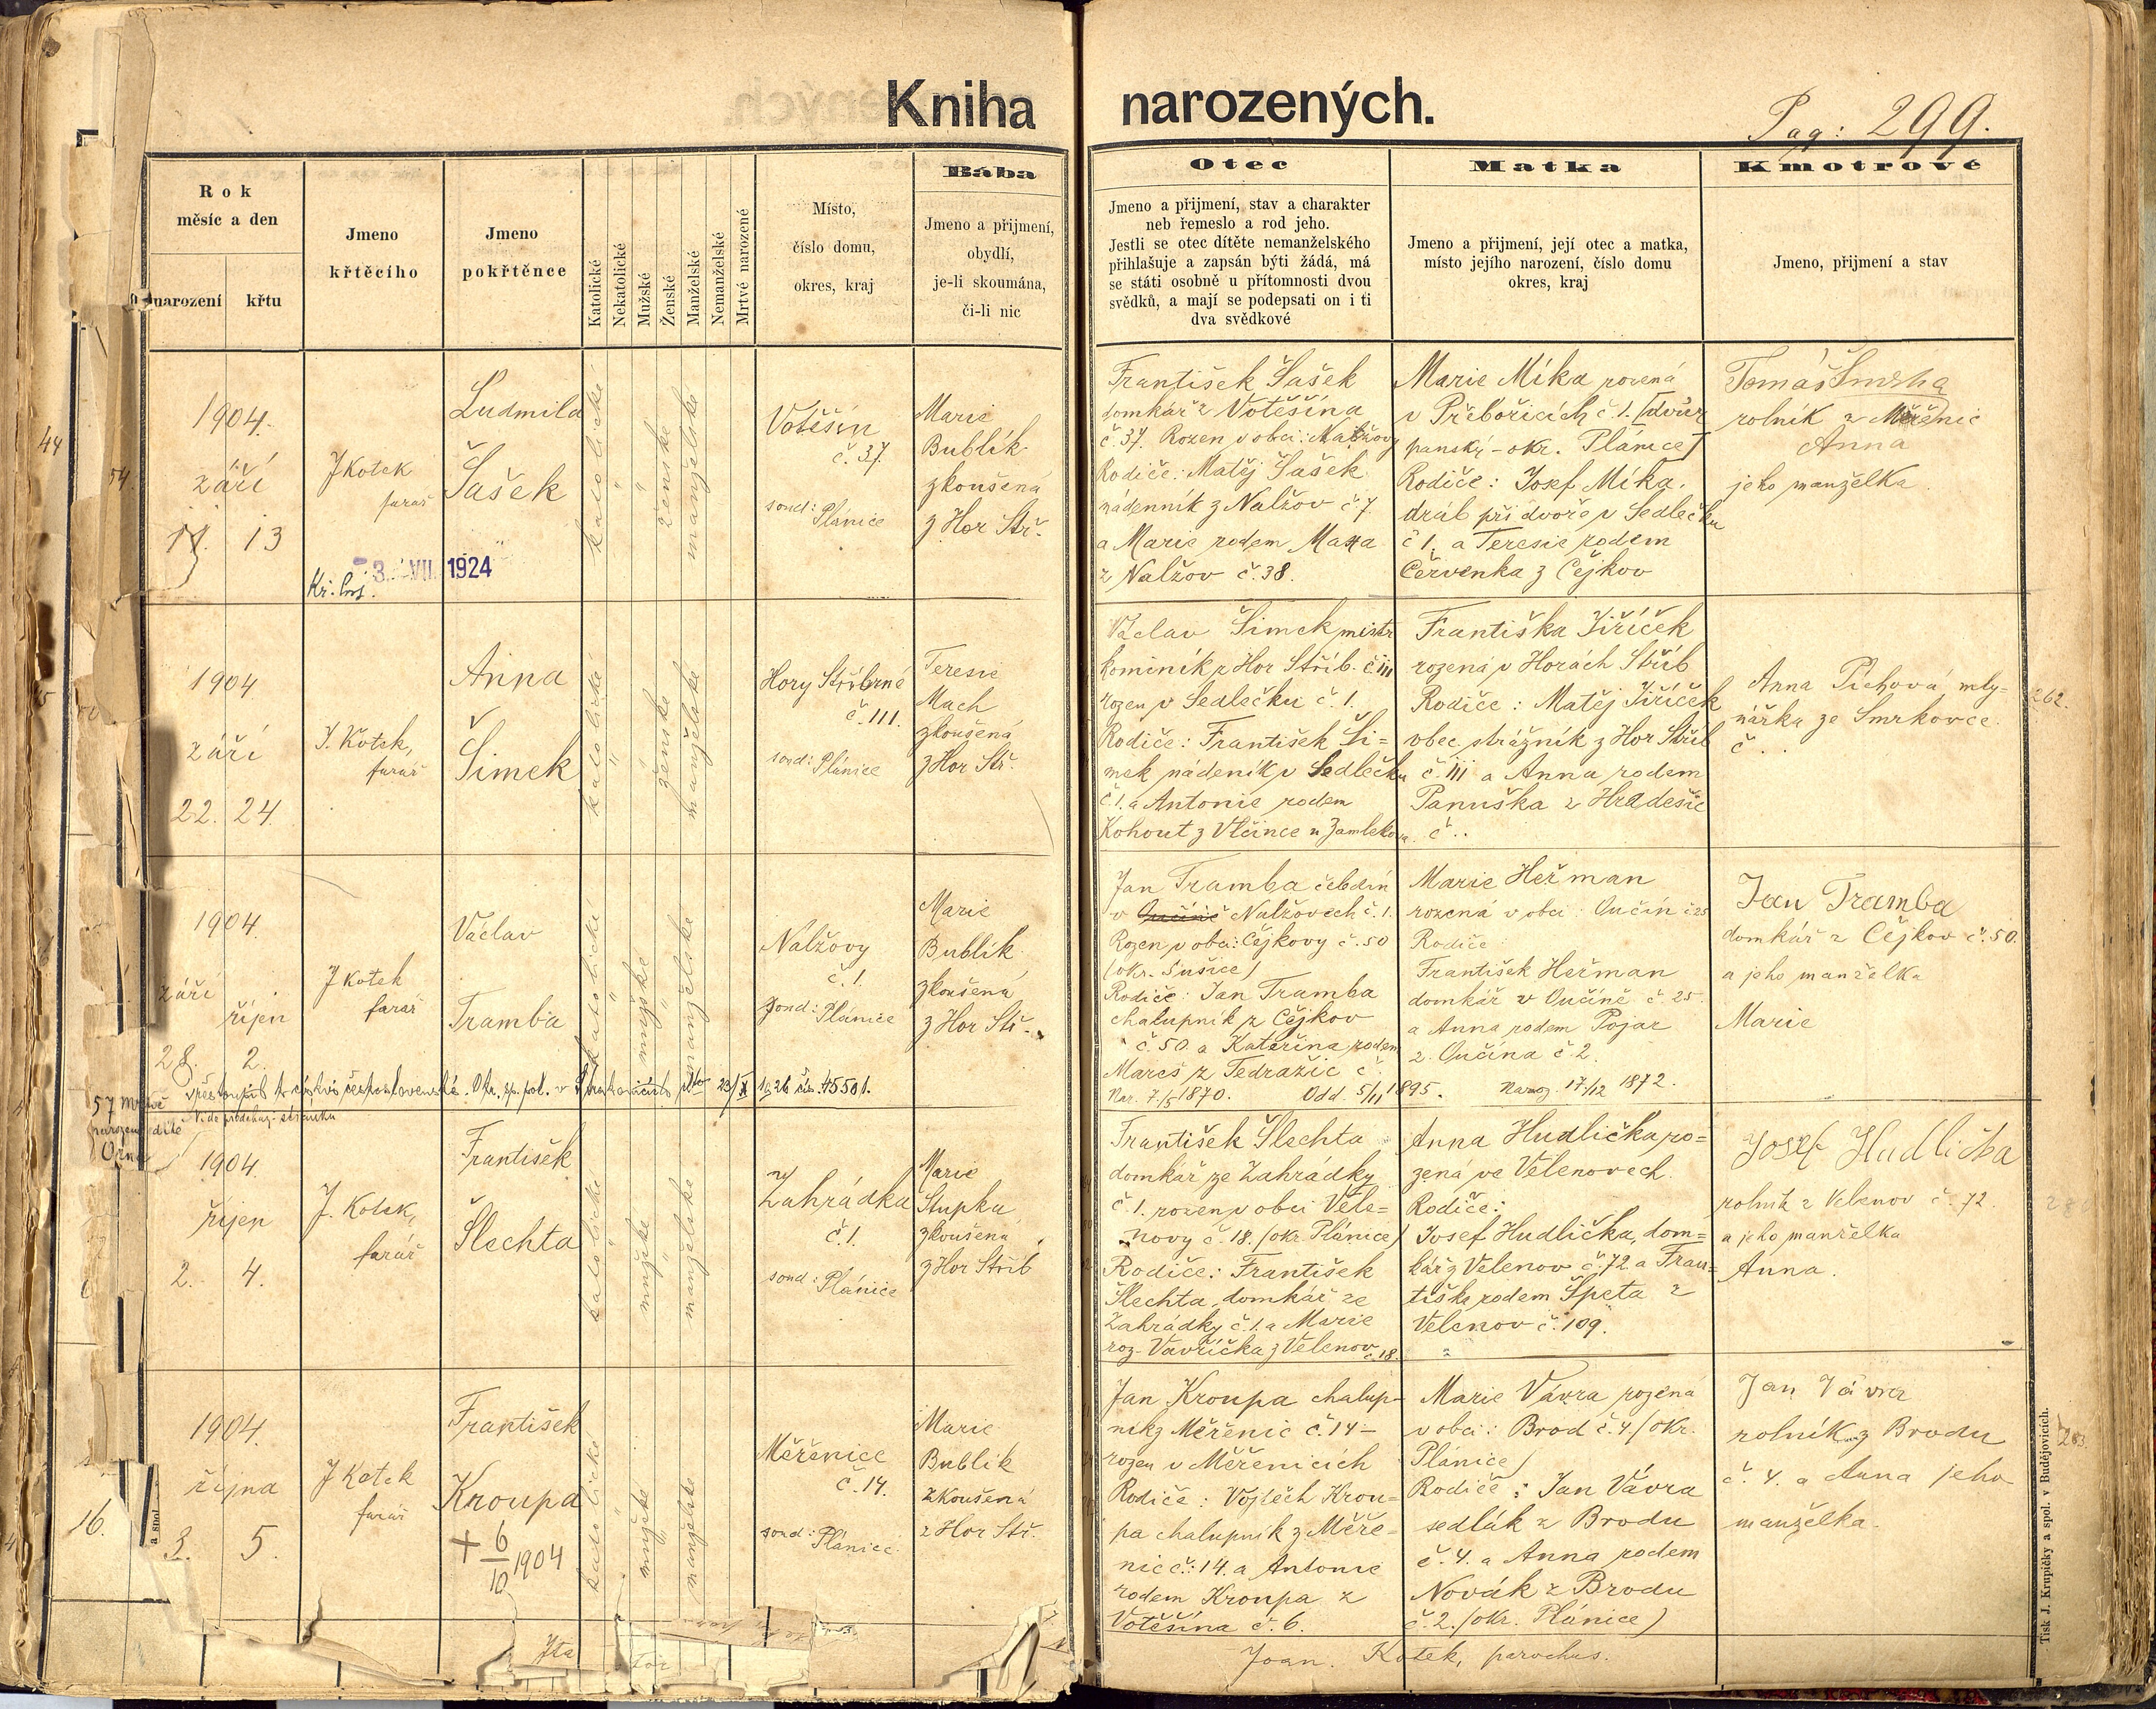 Kniha narozených.
Pag: 299.
Rok
měsíc a den
narození
křtu
Jmeno
křtěcího
Jmeno
pokřtěnce
Katolické
Nekatolické
Mužské
Ženské
Manželské
Nemanželské
Mrtvé narozené
Místo,
číslo domu,
okres, kraj
Bába
Jmeno a přijmení,
obydlí,
je-li skoumána,
či-li nic
Otec
Jmeno a přijmení, stav a charakter
neb řemeslo a rod jeho.
Jestli se otec dítěte nemanželského
přihlašuje a zapsán býti žádá, má
se státi osobně u přítomnosti dvou
svědků, a mají se podepsati on i ti
dva svědkové
Matka
Jmeno a přijmení, její otec a matka,
místo jejího narození, číslo domu
okres, kraj
Kmotrové
Jmeno, přijmení a stav
1904.
září
11. 13
J Kotek
farář
Kř: list. 3. VII. 1924
Ludmila
Šašek
katolické
"
"
ženské
manželské
Votěšín
č. 37.
soud: Plánice
Marie
Bublík
zkoušená
z Hor Stř.
František Šašek
domkář z Votěšína
č. 37. Rozen v obci: Nalžovy
Rodiče: Matěj Šašek
nádenník z Nalžov č 7
a Marie rodem
z Nalžov č. 38.
Marie Míka rozená
v Přebořicích č. 1. (dvůr
panský - okr. Plánice)
Rodiče: Josef Míka.
dráb při dvoře v Sedlečku
č 1. a Teresie rodem
Červenka z Čejkov
Tomáš
rolník z Měřenic
Anna
jeho manželka
1904
září
22. 24.
J. Kotek,
farář
Anna
Šimek
katolické
"
"
ženské
manželské
Hory Stříbrné
č. 111.
soud: Plánice
Teresie
Mach
zkoušená
z Hor Stř.
Václav Šimek mistr
kominík z Hor Stříb. č 111
rozen v Sedlečku č. 1.
Rodiče: František Ši=
mek nádeník v Sedlečku
č. 1. a Antonie rodem
Kohout z Vlčince u Zamlekova.
Františka Jiříček
rozená v Horách Stříb
Rodiče: Matěj Jiříček
obec. strážník z Hor Stříb
č. 111 a Anna rodem
Panuška z Hradešic
č ..
Anna Píchová, mly=
nářka ze Smrkovce.
č . .
262.
1904.
září
říjen
28. 2.
J Kotek
farář
Václav
Tramba
katolické
"
mužské
manželské
Nalžovy
č. 1.
soud: Plánice
Marie
Bublík
zkoušená
z Hor Stř.
Jan Tramba čeledín
v Nalžovech č. 1.
Rozen v obci: Čejkovy č. 50
(okr. Sušice)
Rodiče: Jan Tramba
chalupník z Čejkov
č. 50. a Kateřina rodem
Mareš z Tedražic č.
Nar. 7/5 1870. Odd. 5/11 1895.
Marie Heřman
rozená v obci: Ončín č 25
Rodiče
František Heřman
domkář v Ončíně č. 25.
a Anna rodem Pojar
z Ončína č 2.
Naroz. 17/12 1872.
Jan Tramba
domkář z Čejkov č. 50.
a jeho manželka
Marie
vystoupil k církvi československé. Okr. sp. pol. v Strakonicích dto 23/X 1926 čís. 45501.
57 mrtvě
narozené dítě
Vide předcház. stránku
1904.
říjen
2. 4.
J. Kotek,
farář
František
Šlechta
katolické
"
mužské
"
manželské
Zahrádka
č. 1.
soud: Plánice
Marie
Stupka
zkoušená
z Hor Stříb
František Šlechta
domkář ze Zahrádky
č. 1. rozen v obci Vele=
novy č. 18. (okr Plánice)
Rodiče: František
Šlechta, domkář ze
Zahrádky č. 1. a Marie
roz. Vavřička z Velenov
č. 18.
Anna Hudlička ro=
zená ve Velenovech.
Rodiče:
Josef Hudlička, dom=
kář z Velenov č. 72 a Fran=
tiška rodem Špeta z
Velenov č. 109.
Josef Hudlička
rolník z Velenov č. 72.
a jeho manželka
Anna.
1904.
října
3. 5.
J Kotek
farář
František
Kroupa
+ 6/10 1904
katolické
"
mužské
"
manželské
Měřenice
č. 14.
soud: Plánice.
Marie
Bublík
zkoušená
z Hor Stř.
Jan Kroupa chalup-
ník z Měřenic č. 14 -
rozen v Měřenicích
Rodiče: Vojtěch Krou=
pa chalupník z Měře=
nic č.: 14. a Antonie
rodem Kroupa z
Votěšína č. 6.
Marie Vávra rozená
v obci: Brod č. 4 (okr.
Plánice)
Rodiče: Jan Vávra
sedlák z Brodu
č. 4. a Anna rodem
Novák z Brodu
č. 2. (okr. Plánice)
Jan Vávra
rolník z Brodu
č. 4. a Anna jeho
manželka.
Joan. Kotek, parochus.
44
54.
16.
a spol.
Tisk J. Krupičky a spol. v Budějovicích.